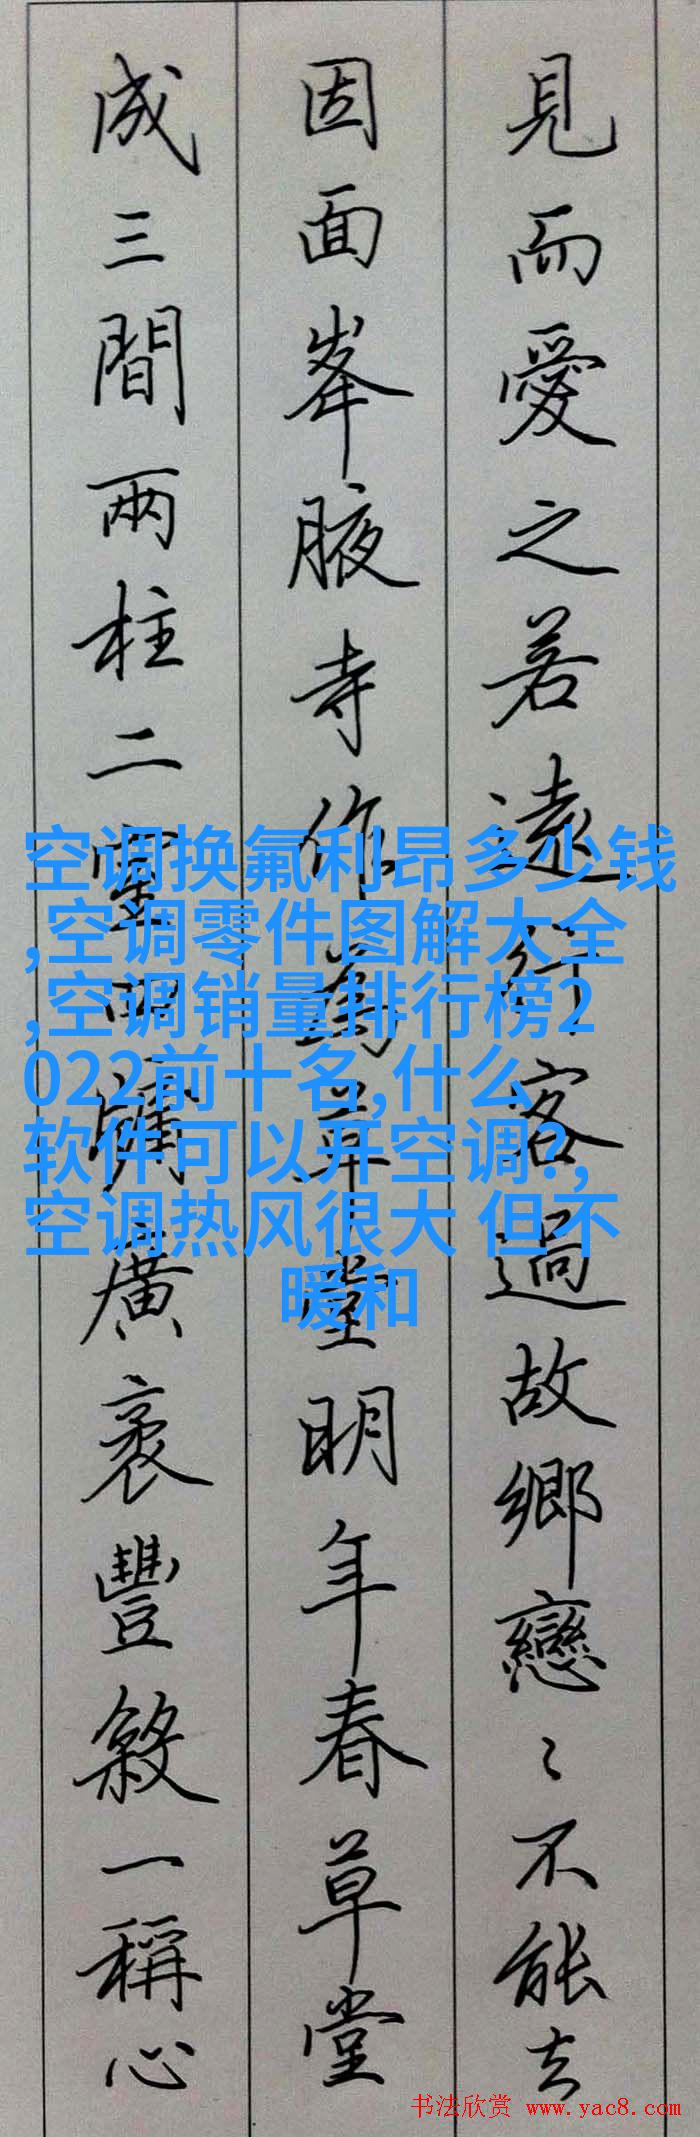 見而愛之若遠行客過故鄉戀〻不能去
因面峯腋寺作為草堂明年春草堂
成三間兩柱二室四牖廣袤豐殺一稱心
空调换氟利昂多少钱
,空调零件图解大全
,空调销量排行榜2
022前十名,什么
软件可以开空调?,
空调热风很大 但不
暖和
书法欣赏 www.yac8.com